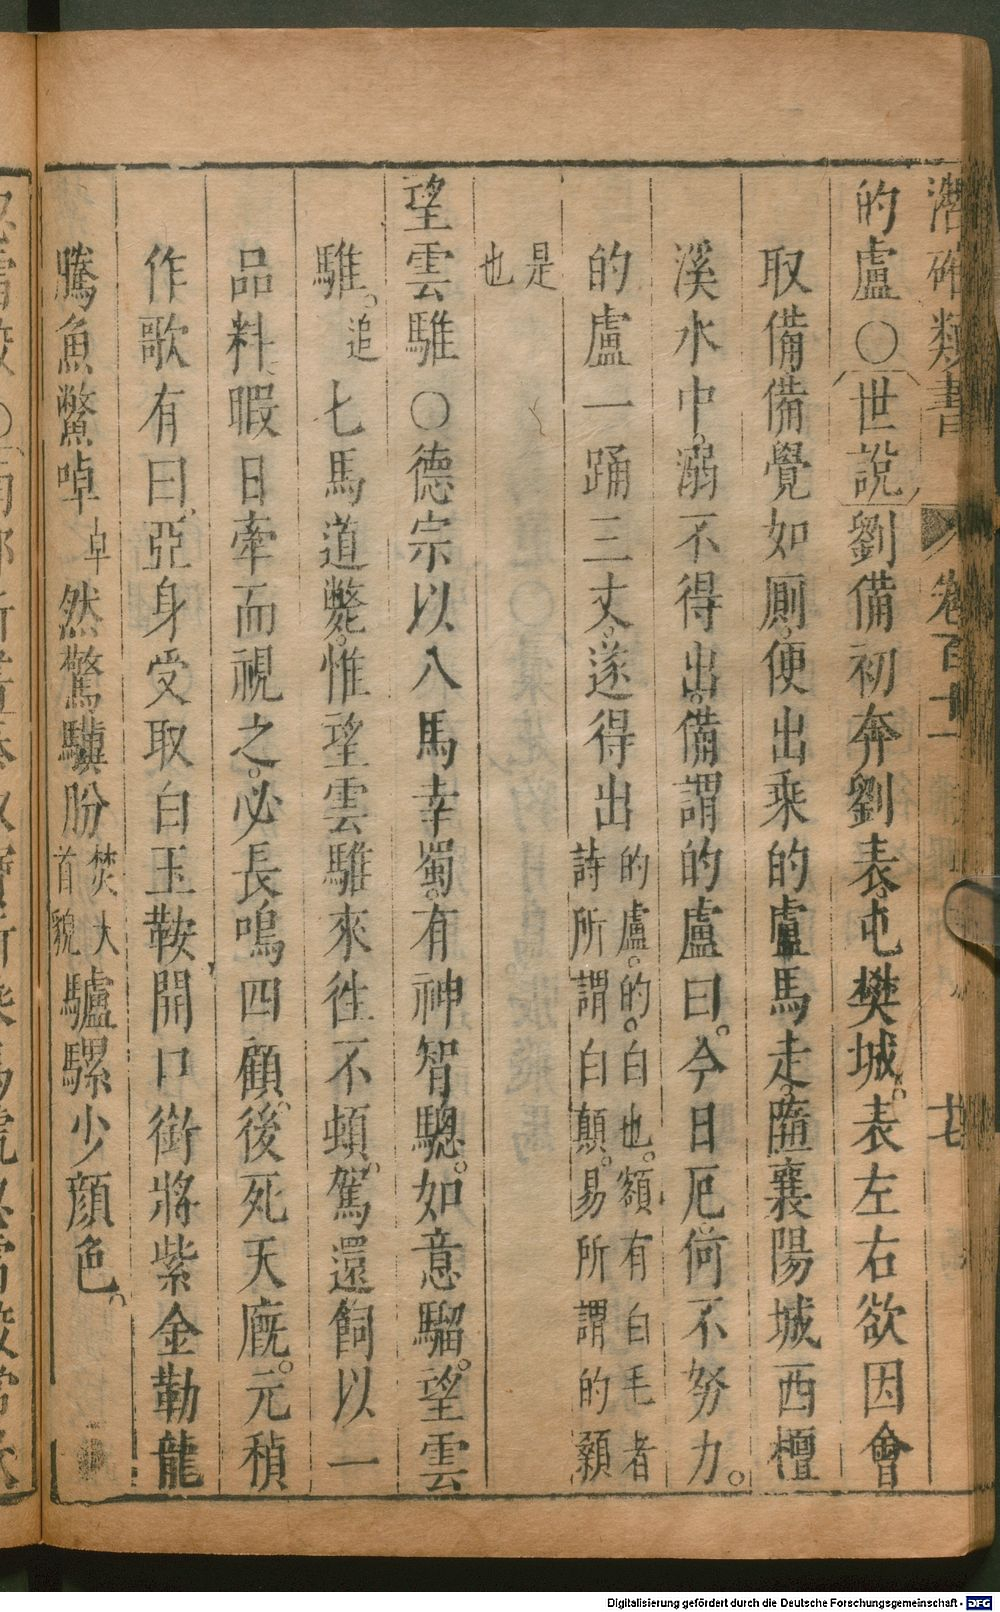 潛確類書 卷百十一 廿
的盧○世說劉備初奔劉表屯樊城表左右欲因會
取備備覺如厠便出乘的盧馬走隨襄陽城西檀
溪水中溺不得出備謂的盧曰今日厄何不努力
的盧一踊三丈遂得出的盧的白也額有白毛者詩所謂白顛易所謂的顙
是也
望雲騅○德宗以八馬幸蜀有神智驄如意騮望雲
騅追七馬道斃惟望雲騅來徃不頓駕還飼以一
品料暇日牽而視之必長鳴四顧後死天廐元稹
作歌有曰亞身受取白玉鞍開口銜將紫金勒龍
騰魚鱉啅卓然驚驥肦焚大首貌驢騾少顔色
Digitalisierung gefördert durch die Deutsche Forschungsgemeinschaft - DFG